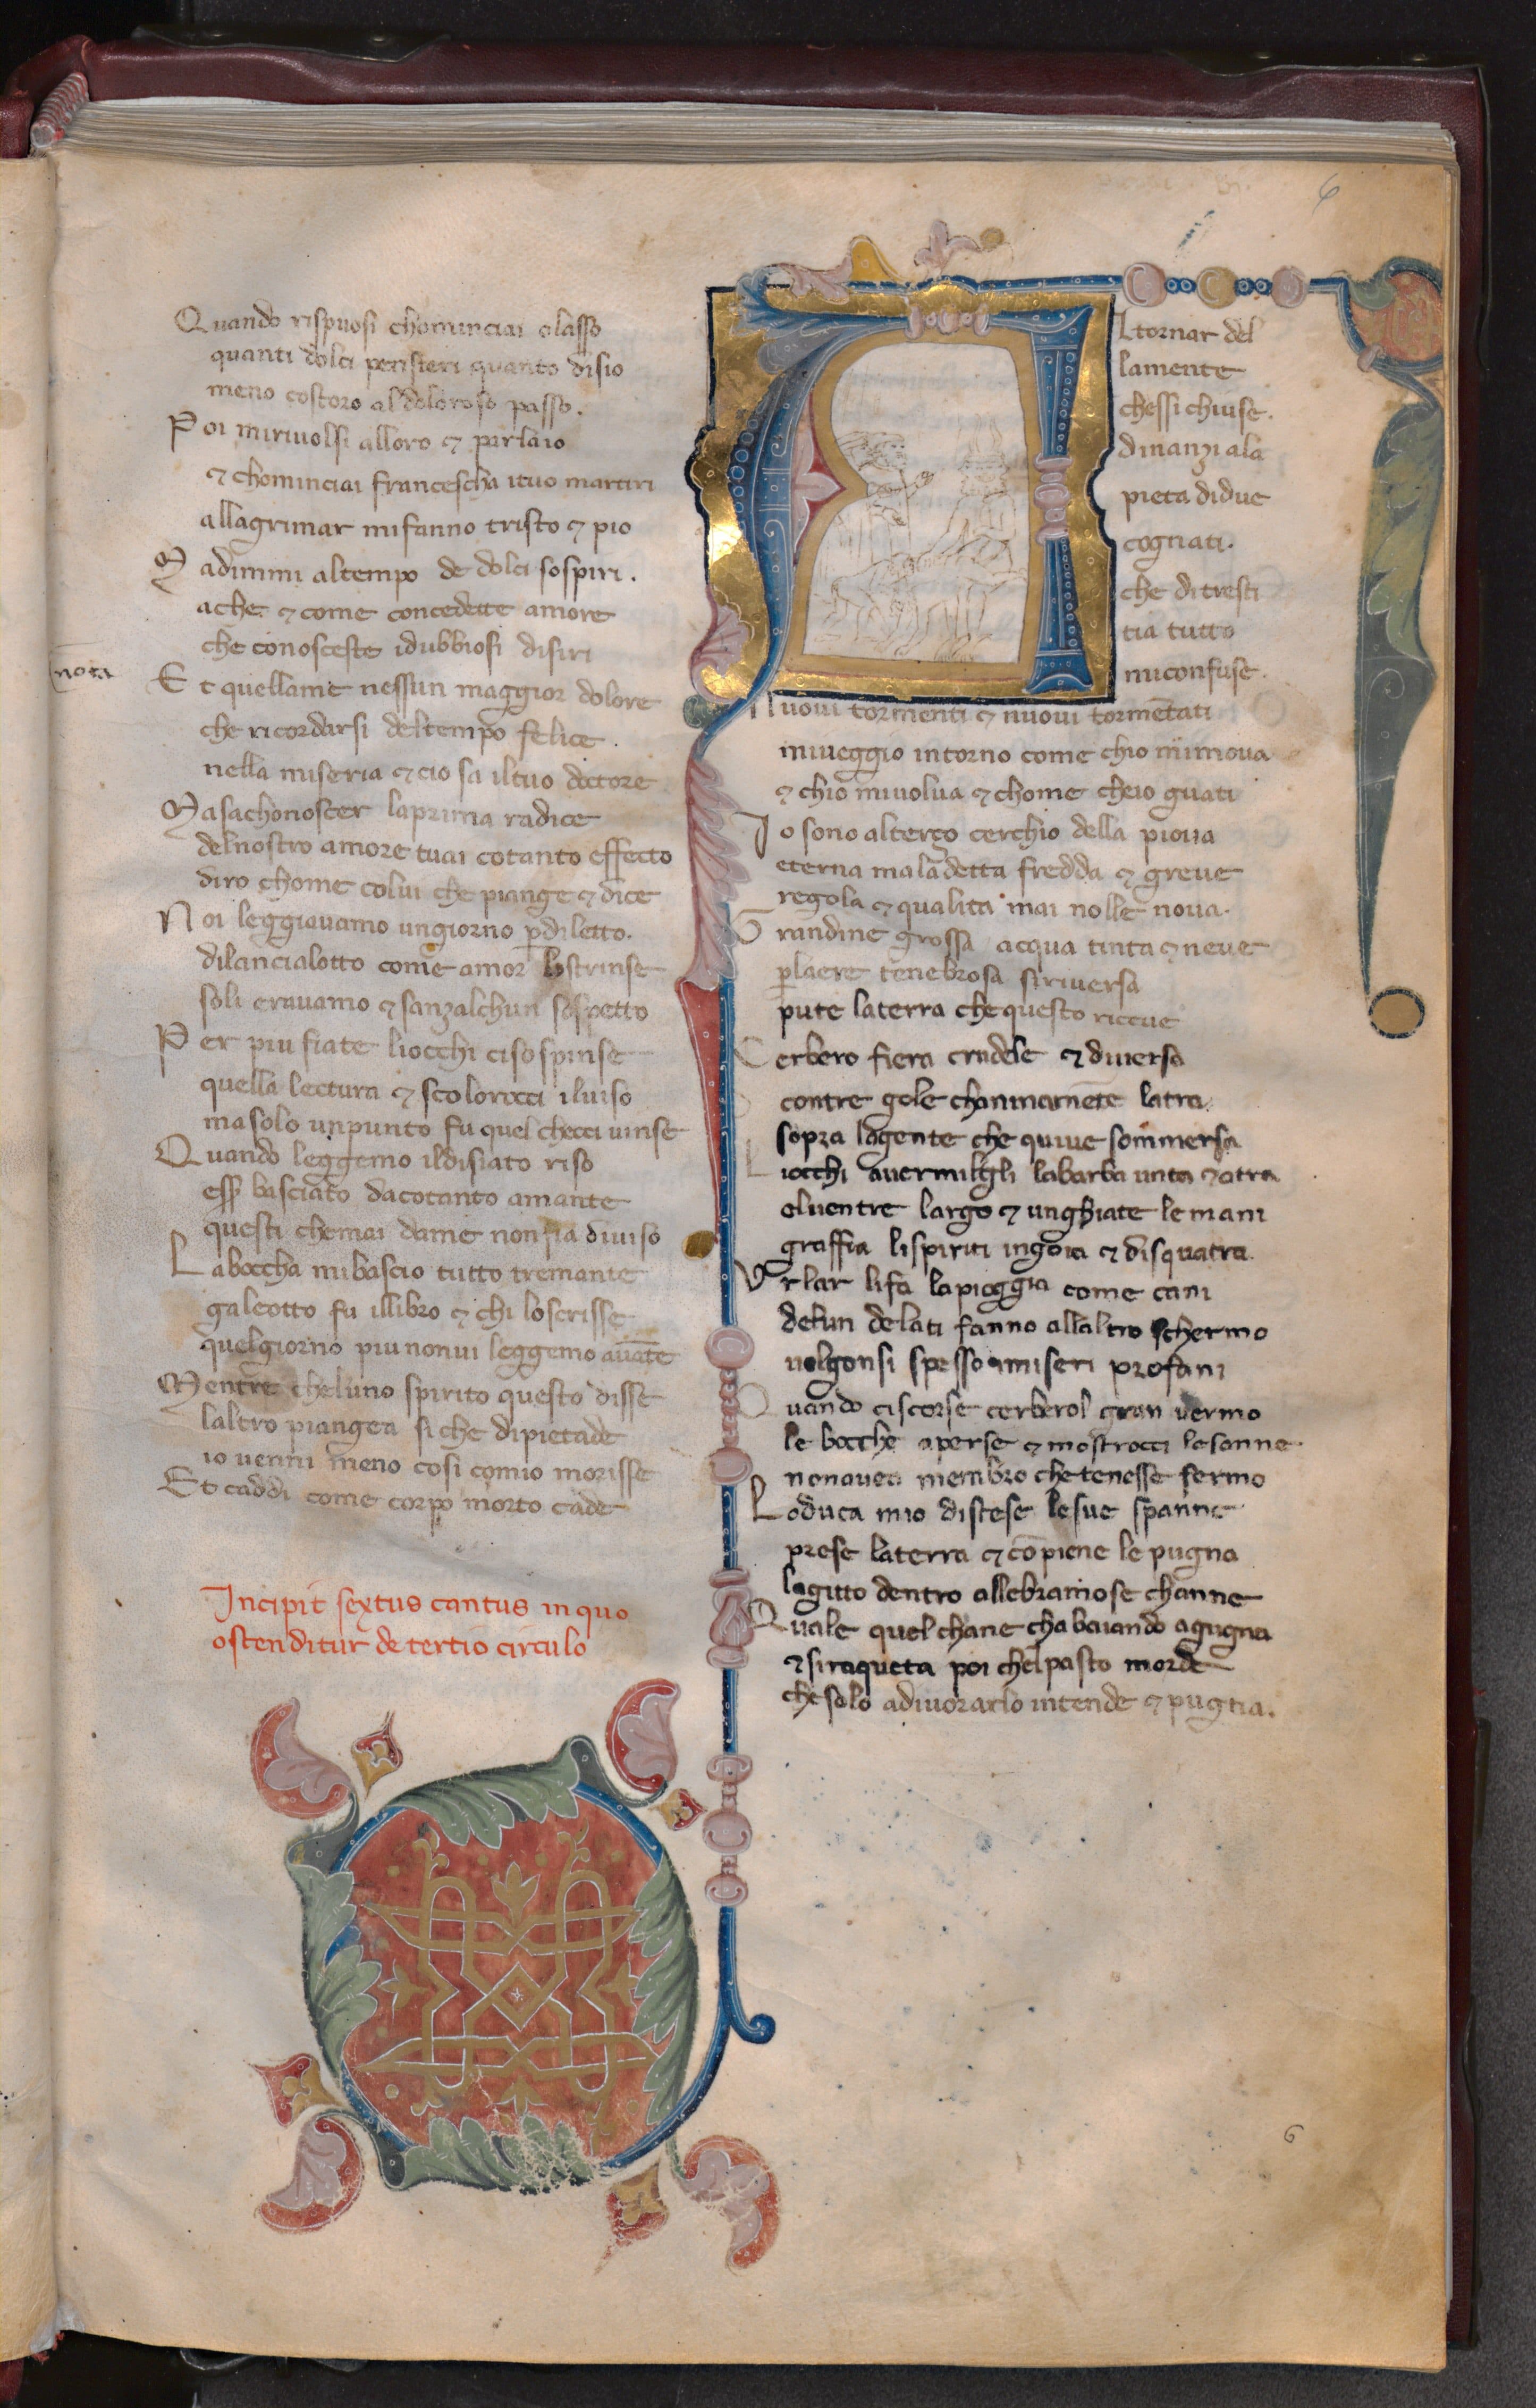 6
Quando rispuosi chominciai olasso
quanti dolci pensieri quanto disio
meno costoro aldoloroso passo.
Poi mirivolsi alloro ⁊ parlaio
⁊ chominciai francescha ituo martiri
allagrimar mifanno tristo ⁊ pio
Madimmi altempo de dolci sospiri.
ache ⁊ come concedette amore
che conosceste idubbiosi disiri
nota
Et quellame nessun maggior dolore
che ricordarsi deltempo felice.
nella miseria ⁊ cio sa iltuo doctore
Masachonoscer laprima radice
delnostro amore tuai cotanto effecto
diro chome colui che piange ⁊ dice
Noi leggiavamo ungiorno ꝑdiletto.
dilancialotto come amor lostrinse
soli eravamo ⁊ sanzalchun sospetto
Per piu fiate liocchi cisospinse
quella lectura ⁊ scolorocci iluiso
masolo unpunto fu quel checci uinse
Quando leggemo ildisiato riso
esẜ basciato dacotanto amante
questi chemai dame nonfia diuiso
Laboccha mibascio tutto tremante
galeotto fu illibro ⁊ chi loscrisse
quelgiorno piu nonui leggemo auāte
Mentre cheluno spirito questo disse
laltro piangea siche dipietade
io uenni meno cosi comio morisse
Et caddi come corpo morto cade
Incipit sextus cantus in quo
ostenditur de tertio circulo
Altornar del
lamente
chessi chiuse.
dinanzi ala
pieta didue
cognati.
che di tresti
tia tutto
miconfuse.
Nuoui tormenti ⁊ nuoui tormētati
miueggio intorno come chio mimoua
⁊ chio miuolua ⁊ chome cheio guati
Io sono alterço cerchio della pioua
eterna maladetta fredda ⁊ greue
regola ⁊ qualita mai nolle noua.
Grandine grossa acqua tinta ⁊ neue
ꝑlaere tenebrosa siriuersa
pute laterra che questo riceue
Cerbero fiera crudele ⁊ diuersa
contre gole chaninamēte latra
sopra lagente che quiue sommersa
Liocchi auermilgli labarba unta ⁊ atra
eluentre largo ⁊ unghiate le mani
graffia lispiriti ingoia ⁊ disquatra
Urlar lifa lapioggia come cani
delun delati fanno allaltro schermo
uolgonsi spesso imiseri profani
Quando ciscorse cerberol gran uermo
le bocche aperse ⁊ mostrocci lesanne
nonauea membro che tenesse fermo
Loduca mio distese lesue spanne
prese laterra ⁊ cōpiene le pugna
lagitto dentro allebramose channe
Quale quel chane cha baiando agugna
⁊ siraqueta poi chelpasto morde
che solo adiuorarlo intende ⁊ pugna.
6